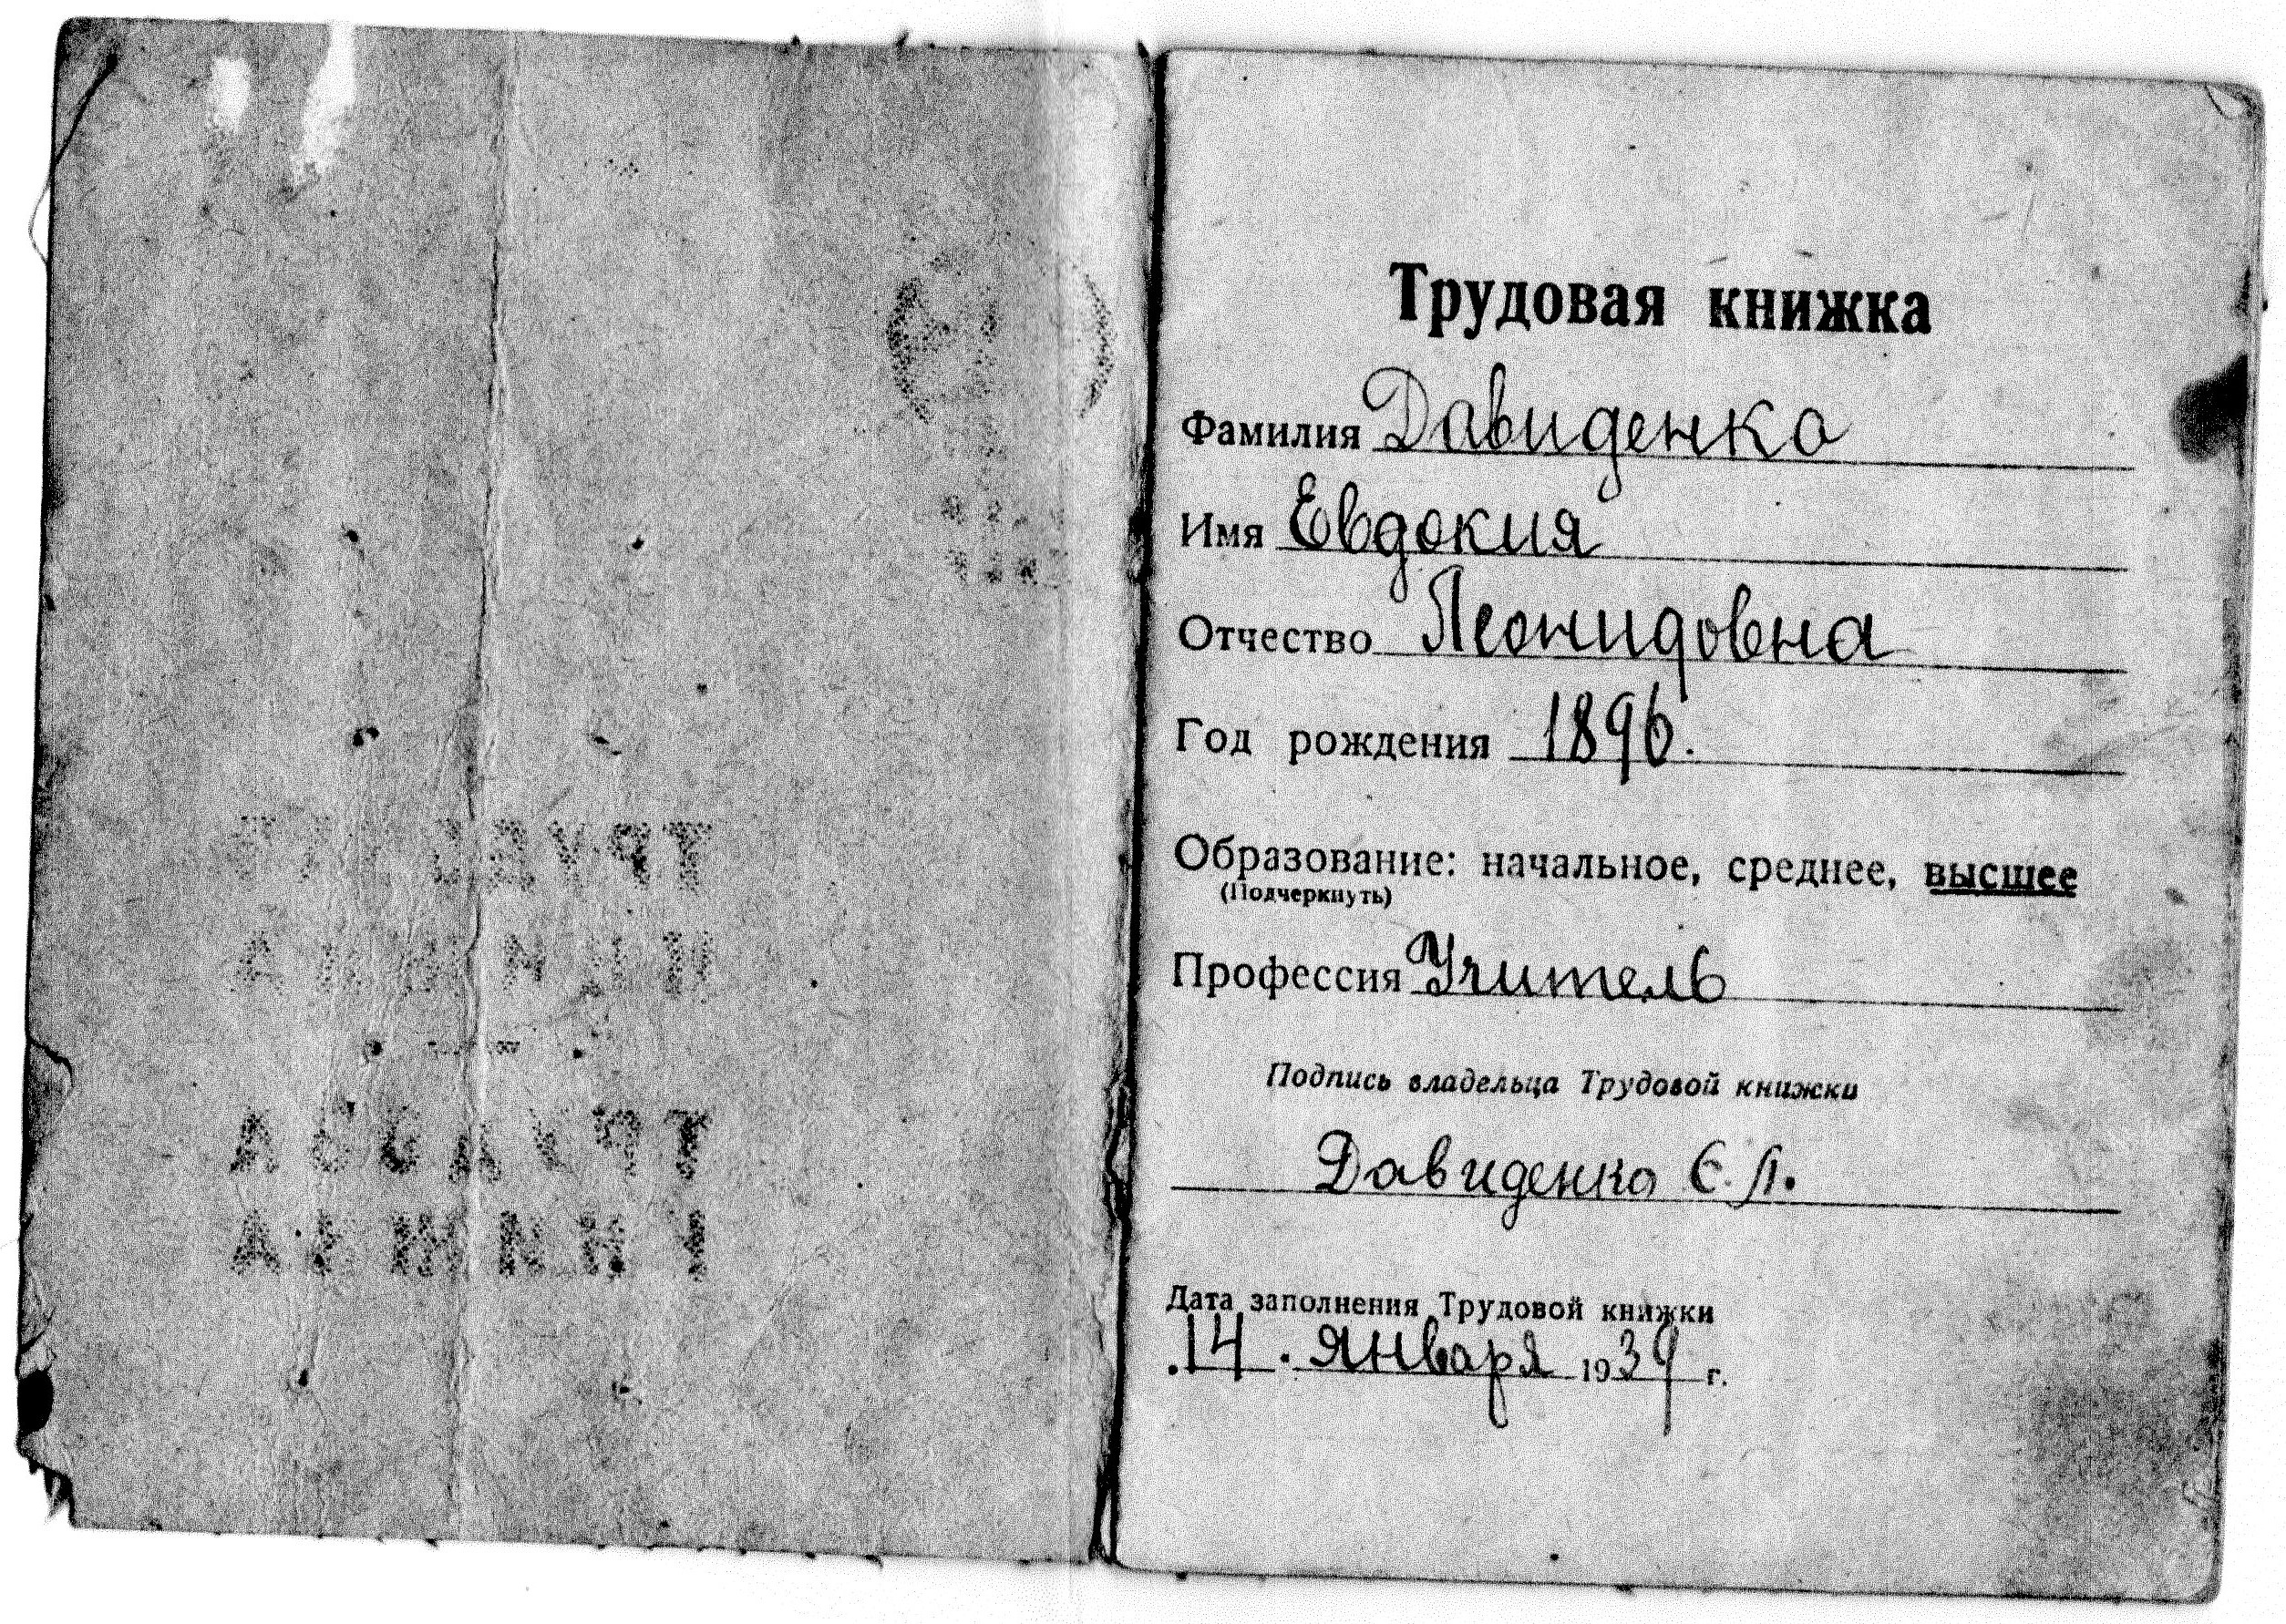 Трудовая книжка
Фамилия Давиденко
Имя Евдокия
Отчество Леонидовна
Год рождения 1896.
Образование: начальное, среднее, высшее
(Подчеркнуть)
Профессия Учитель
Подпись владельца Трудовой книжки
Давиденко Е. Л.
Дата заполнения Трудовой книжки
14. января 1939 г.